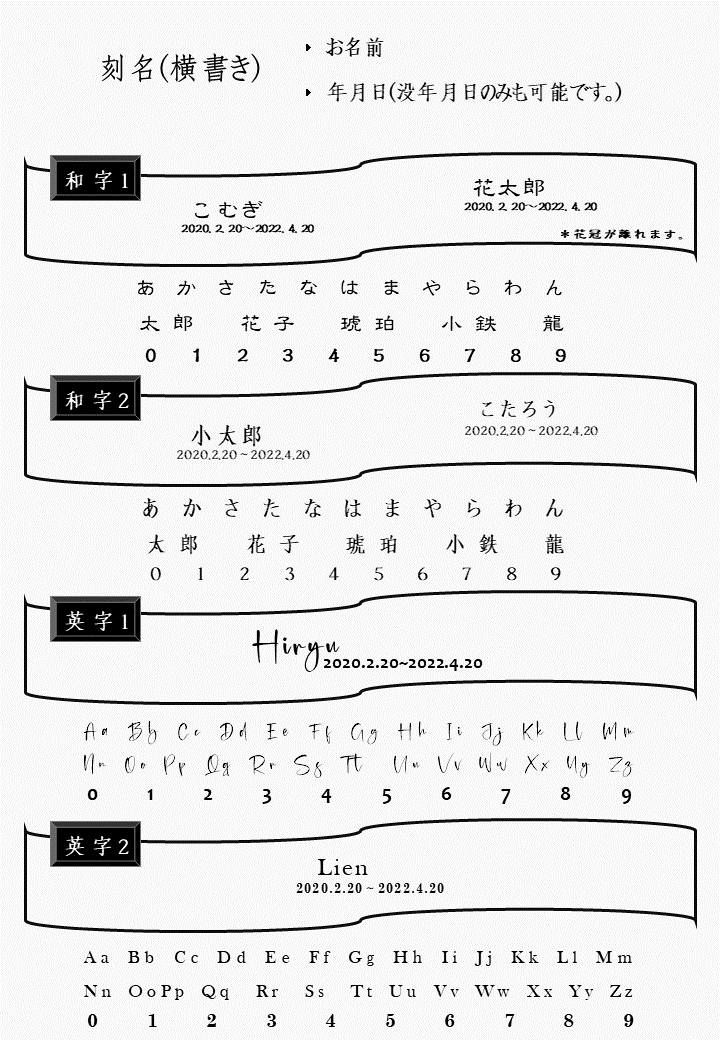 刻名(横書き)
▶ お名前
▶ 年月日(没年月日のみも可能です。)
和字1
こむぎ
2020.2.20～2022.4.20
花太郎
2020.2.20～2022.4.20
＊花冠が離れます。
あ か さ た な は ま や ら わ ん
太郎 花子 琥珀 小鉄 龍
0 1 2 3 4 5 6 7 8 9
和字2
小太郎
2020.2.20~2022.4.20
こたろう
2020.2.20~2022.4.20
あ か さ た な は ま や ら わ ん
太郎 花子 琥珀 小鉄 龍
0 1 2 3 4 5 6 7 8 9
英字1
Hiryu
2020.2.20~2022.4.20
Aa Bb Cc Dd Ee Ff Gg Hh Ii Jj Kk Ll Mm
Nn Oo Pp Qq Rr Ss Tt Uu Vv Ww Xx Yy Zz
0 1 2 3 4 5 6 7 8 9
英字2
Lien
2020.2.20~2022.4.20
Aa Bb Cc Dd Ee Ff Gg Hh Ii Jj Kk Ll Mm
Nn Oo Pp Qq Rr Ss Tt Uu Vv Ww Xx Yy Zz
0 1 2 3 4 5 6 7 8 9